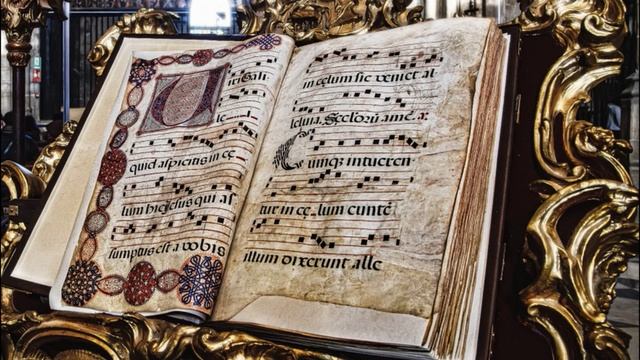 Uiri Gali
le
quid aspicitis in cę
lum hic iesus qui as
sumptus est a vobis
in celum sic veniet al
leluia. Seclorū amē. a:
Cumqꝫ intueren
tur in cę lum euntē
illum dixerunt alle